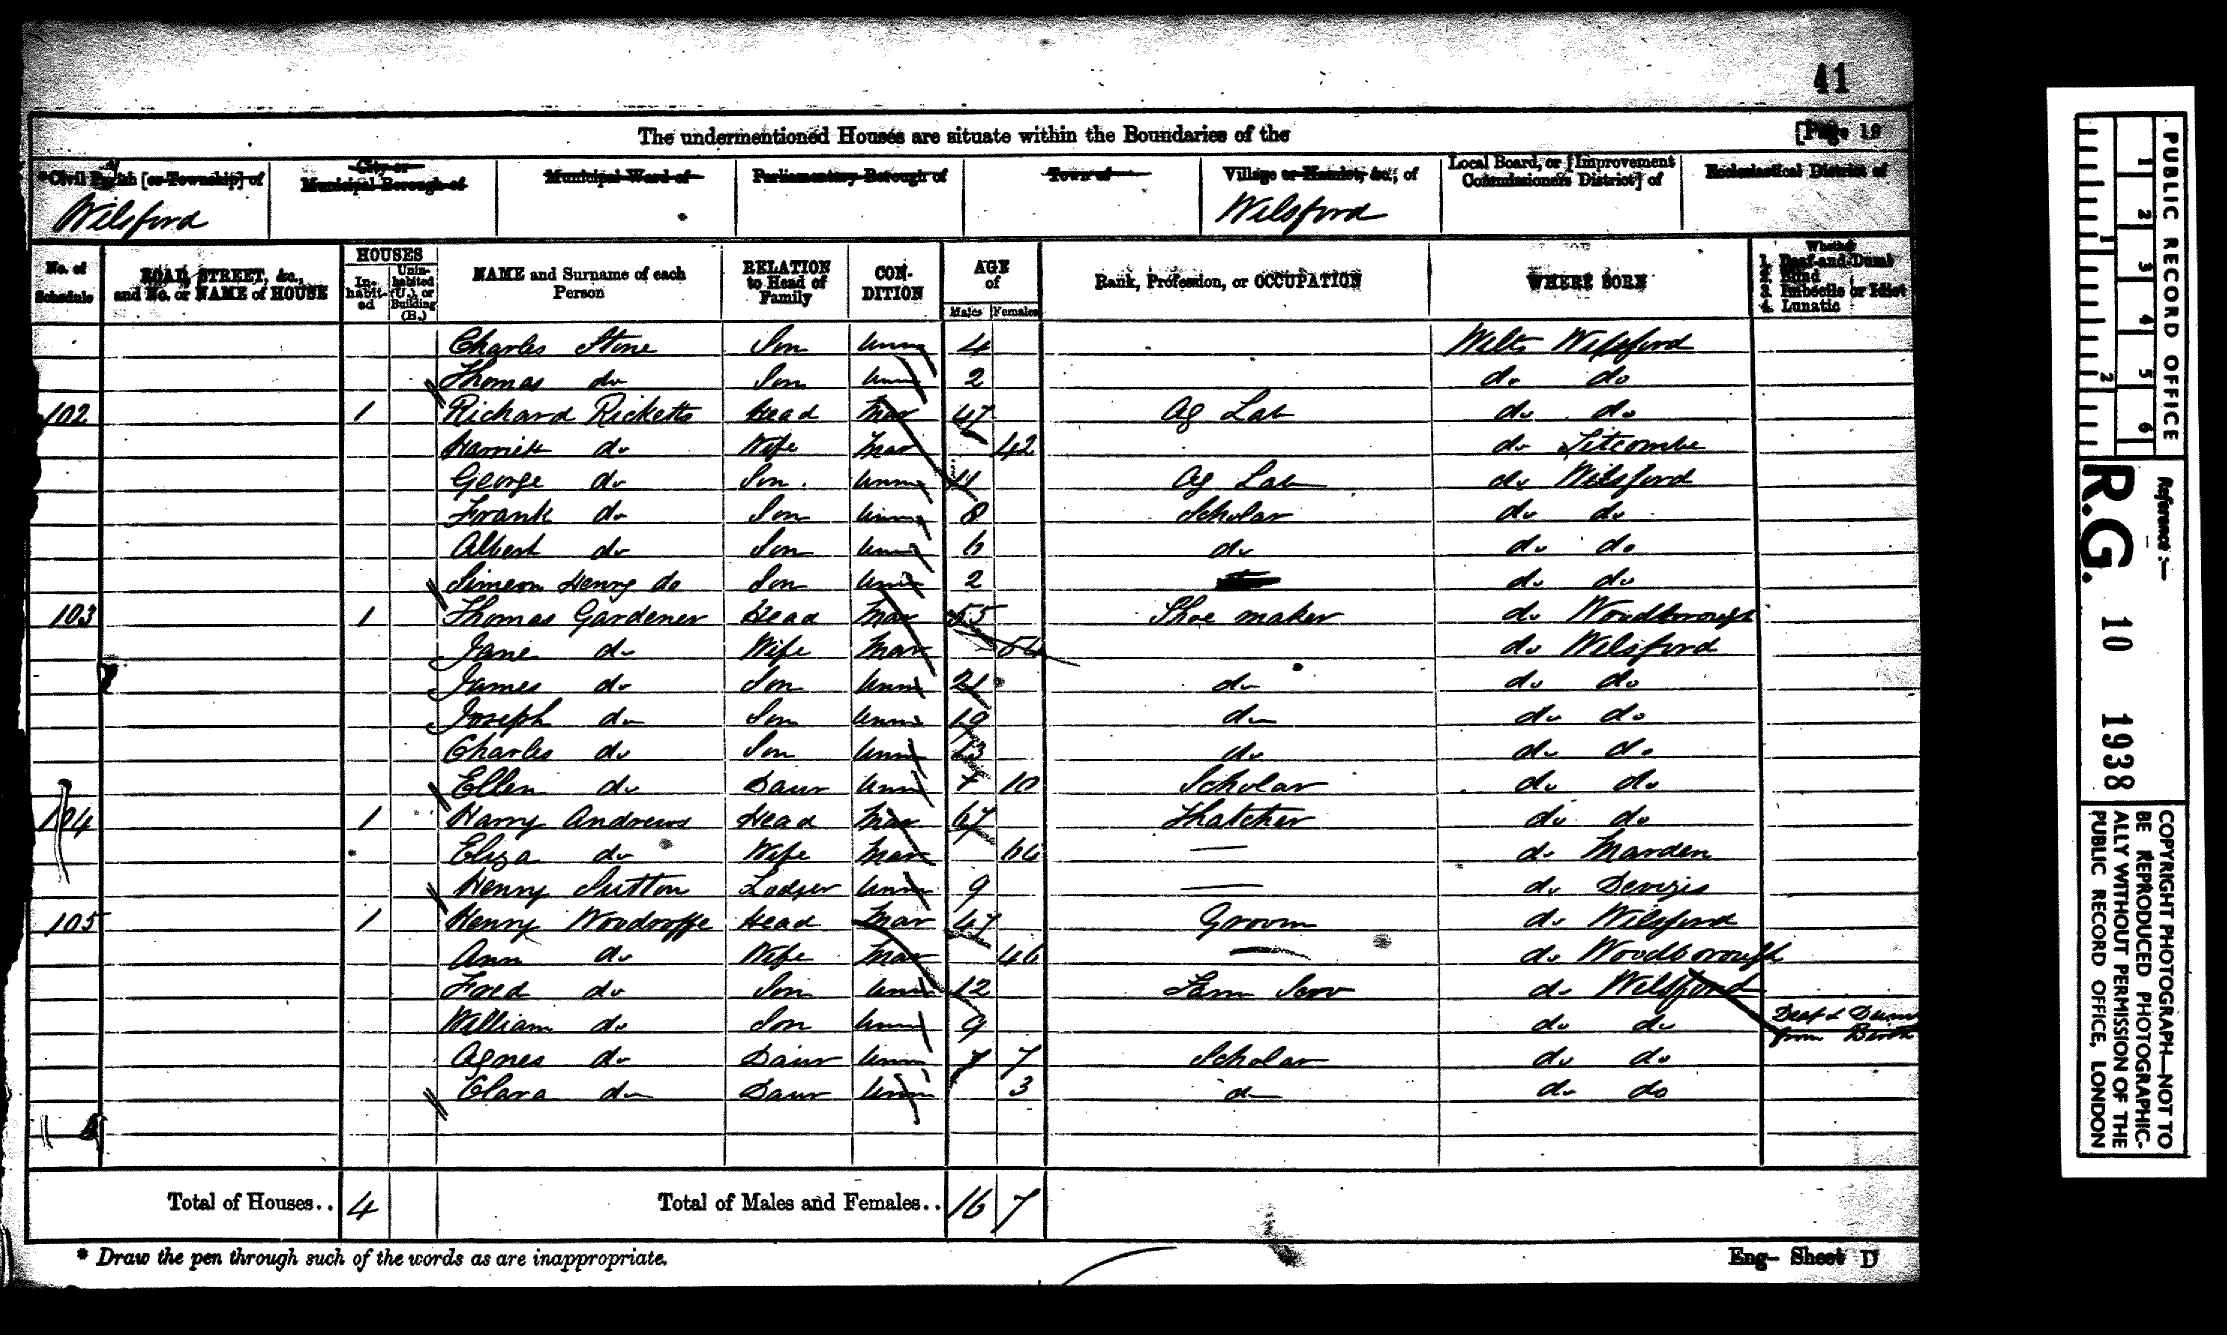 41
The undermentioned Houses are situate within the Boundaries of the
[Page 19
*Civil Parish [or Township] of
City or Municipal Borough of
Municipal Ward of
Parliamentary Borough of
Town of
Village or Hamlet, &c., of
Local Board, or [Improvement Commissioners District] of
Ecclesiastical District of
Wilsford
Wilsford
No. of Schedule
ROAD, STREET, &c., and No. or NAME of HOUSE
HOUSES
In-habit-ed
Unin-habited (U.), or Building (B.)
NAME and Surname of each Person
RELATION to Head of Family
CON-DITION
AGE of
Males
Females
Rank, Profession, or OCCUPATION
WHERE BORN
Whether
1. Deaf-and-Dumb
2. Blind
3. Imbecile or Idiot
4. Lunatic
Charles Stone Son Unm 4 Wilts Wilsford
Thomas do Son Unm 2 do do
102 1 Richard Ricketts Head Mar 47 Ag Lab do do
Harriet do Wife Mar 42 do
George do Son Unm 11 Ag Lab do Wilsford
Frank do Son Unm 8 Scholar do do
Albert do Son Unm 6 do do do
Simeon Henry do Son Unm 2 do do
103 1 Thomas Gardener Head Mar 55 Shoe maker do Woodborough
Jane do Wife Mar do Wilsford
James do Son Unm 21 do do do
Joseph do Son Unm 19 do do do
Charles do Son Unm 13 do do do
Ellen do Daur Unm 10 Scholar do do
104 1 Harry Andrews Head Mar 67 Thatcher do do
Eliza do Wife Mar 66 — do Marden
Henry Sutton Lodger Unm 9 — do Devizes
105 1 Henry Woodroffe Head Mar 47 Groom do Wilsford
Ann do Wife Mar 46 — do Woodborough
Fred do Son Unm 12 Farm Serv do Wilsford
William do Son Unm 9 do do Deaf & Dumb from Birth
Agnes do Daur Unm 7 Scholar do do
Clara do Daur Unm 3 do do do
Total of Houses.. 4
Total of Males and Females.. 16 7
* Draw the pen through such of the words as are inappropriate.
Eng- Sheet D
PUBLIC RECORD OFFICE
1 2 3 4 5 6
1 2
Reference :—
R.G. 10 1938
COPYRIGHT PHOTOGRAPH—NOT TO
BE REPRODUCED PHOTOGRAPHIC-
ALLY WITHOUT PERMISSION OF THE
PUBLIC RECORD OFFICE, LONDON